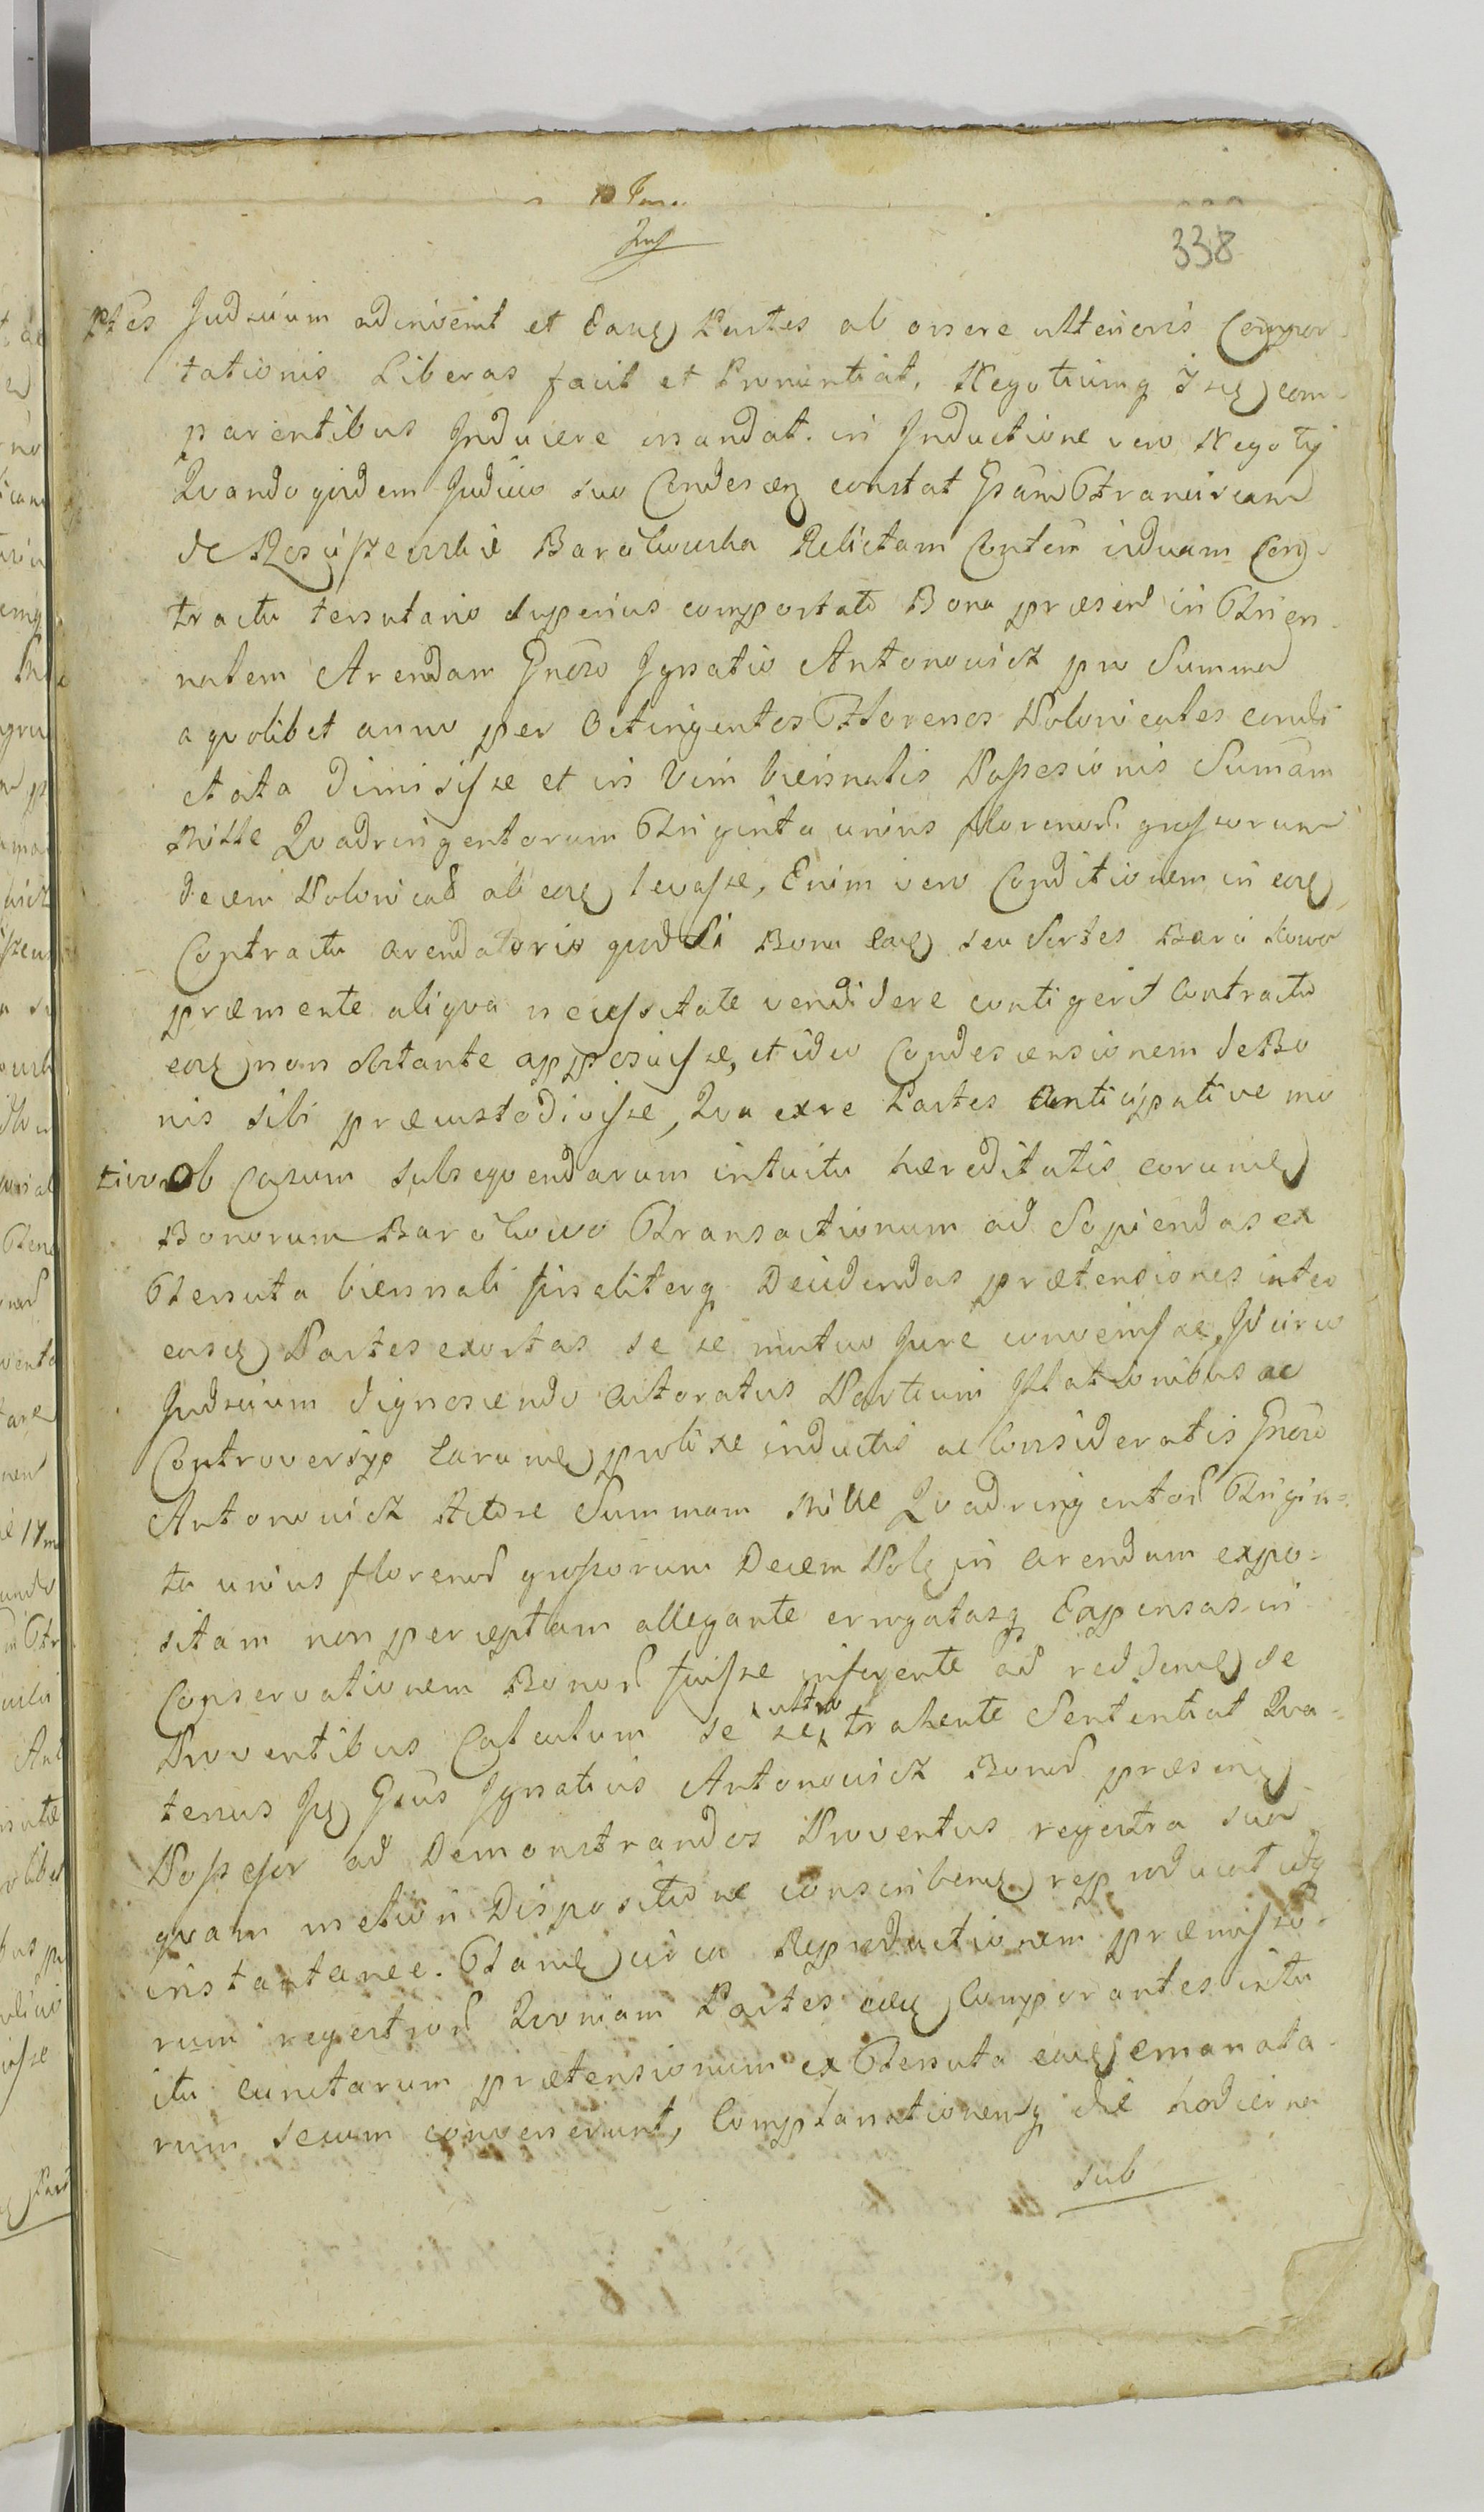 338
ptes Judicium adinvenit et Easq Partes ab onere ulterioris Compor-
tationis Liberas facit et Pronuntiat, Negotiumq com-
parentibus Inducere mandat. in Inductione vero Negotÿ
Qvando qvidem Judicio suo constat Gsam Franciscam
de Barcikowska Relictam viduam Con-
tractu tenutario superius comportato Bona præsen in Trien-
nalem Arendam Gneroso Ignatio Antonowicz pro Summa
a qvolibet anno per Octingentos Florenos Polonicales condi
ctata Dimisisse et in Vim biennalis Possesionis Sumam
Mille Qvadringentorum Triginta unius florenor. grossorum
decem Polonical ab eoq levasse, Enim vero Conditionem in eoq
Contractu arendatorio qvod si Bona eaq seu Sortes Barcikowo
præmente aliqva necessitate vendidere contigerit Contractu
eoq non obstante apposuisse, et ideo Condescensionem de Bo
nis sibi præcustodivisse, Qva ex re Partes Anticipative mo
tivo ob Casum subseqvendarum intuitu hæreditatis eorumq
Bonorum Barcikowo Transactionum ad Sopiendas ex
Tenuta biennali finaliterq Decidendas prætensiones inter
easq Partes exortas se se mutuo Jure convenisse,
Judicium dignoscendo Actoratus Partium Illationibus ac
Controversÿs Earumq prolixe inductis ac Consideratis Gnoso
Antonowicz Actore Summam Mille Qvadringentor Trigin-
ta unius florenor grossorum Decem Polq in arendam expo-
sitam non perceptam allegante erogatasq Expensas in
Conservationem Bonor fuisse inferente ad reddenq de
Proventibus Calculum se se ultro trahente Sententiat Qva-
tenus Gsus Ignatius Antonowicz Bonor præsenq
Possesor ad Demonstrandos Proventus regestra sua
qvam meliori Dispositione conscribenq reproducat idq
instantanee. Tamq circa Reproductionem præmisso-
rum regestror Qvoniam Partes eæq Comparantes intu
itu cunctarum prætensionum ex Tenuta eaq emanata-
rum secum convenerunt, Complanationemq die hodierna
sub